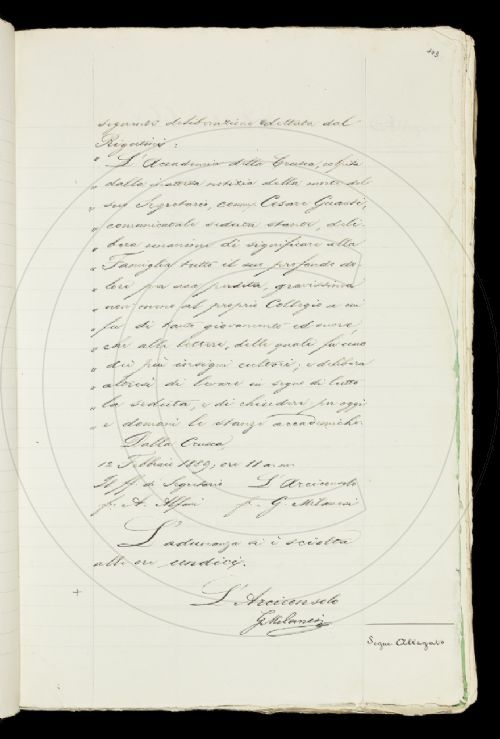 443
seguente deliberazione dettata dal
Rigutini:
" L'Accademia della Crusca, colpita
" dalla inattesa notizia della morte del
" suo Segretario, comm. Cesare Guasti,
" comunicatale seduta stante, deli-
" bera unanime di significare alla
" Famiglia tutto il suo profondo do-
" lore per una perdita, gravissima
" non meno al proprio Collegio a cui
" fu di tanto giovamento ed onore,
" che alle lettere, delle quali fu uno
" dei più insigni cultori; e delibera
" altresì di levare in segno di lutto
" la seduta, e di chiudere per oggi
" e domani le stanze accademiche.
Dalla Crusca,
12 Febbraio 1889; ore 11 a.m.
Il ff. di Segretario L'Arciconsolo
f. A. Alfani f. G. Milanesi
L'adunanza si è sciolta
alle ore undici.
L'Arciconsolo
G. Milanesi
Segue Allegato